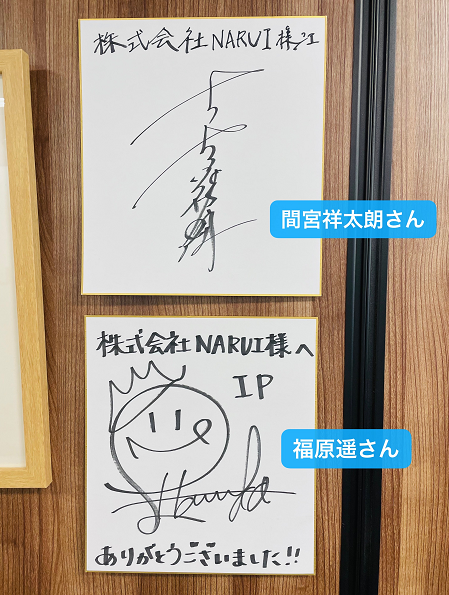 株式会社NARUI様江
間宮祥太朗さん
株式会社NARUI様へ
IP
福原遥さん
Haruka
ありがとうございました!!